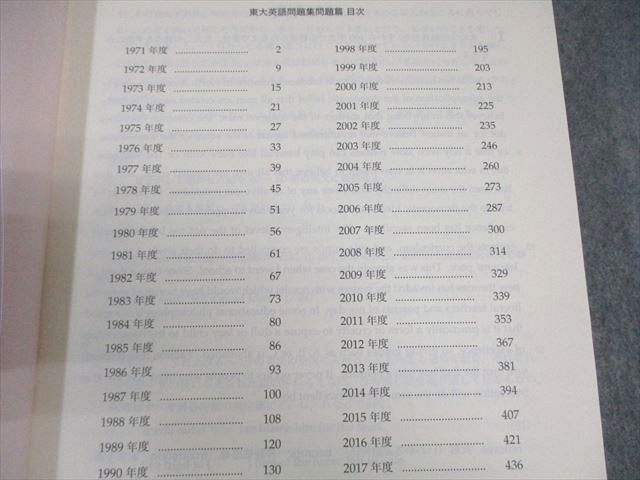 東大英語問題集問題篇 目次
1971 年度 ........................ 2
1972 年度 ........................ 9
1973 年度 ........................ 15
1974 年度 ........................ 21
1975 年度 ........................ 27
1976 年度 ........................ 33
1977 年度 ........................ 39
1978 年度 ........................ 45
1979 年度 ........................ 51
1980 年度 ........................ 56
1981 年度 ........................ 61
1982 年度 ........................ 67
1983 年度 ........................ 73
1984 年度 ........................ 80
1985 年度 ........................ 86
1986 年度 ........................ 93
1987 年度 ........................ 100
1988 年度 ........................ 108
1989 年度 ........................ 120
1990 年度 ........................ 130
1998 年度 ........................ 195
1999 年度 ........................ 203
2000 年度 ........................ 213
2001 年度 ........................ 225
2002 年度 ........................ 235
2003 年度 ........................ 246
2004 年度 ........................ 260
2005 年度 ........................ 273
2006 年度 ........................ 287
2007 年度 ........................ 300
2008 年度 ........................ 314
2009 年度 ........................ 329
2010 年度 ........................ 339
2011 年度 ........................ 353
2012 年度 ........................ 367
2013 年度 ........................ 381
2014 年度 ........................ 394
2015 年度 ........................ 407
2016 年度 ........................ 421
2017 年度 ........................ 436